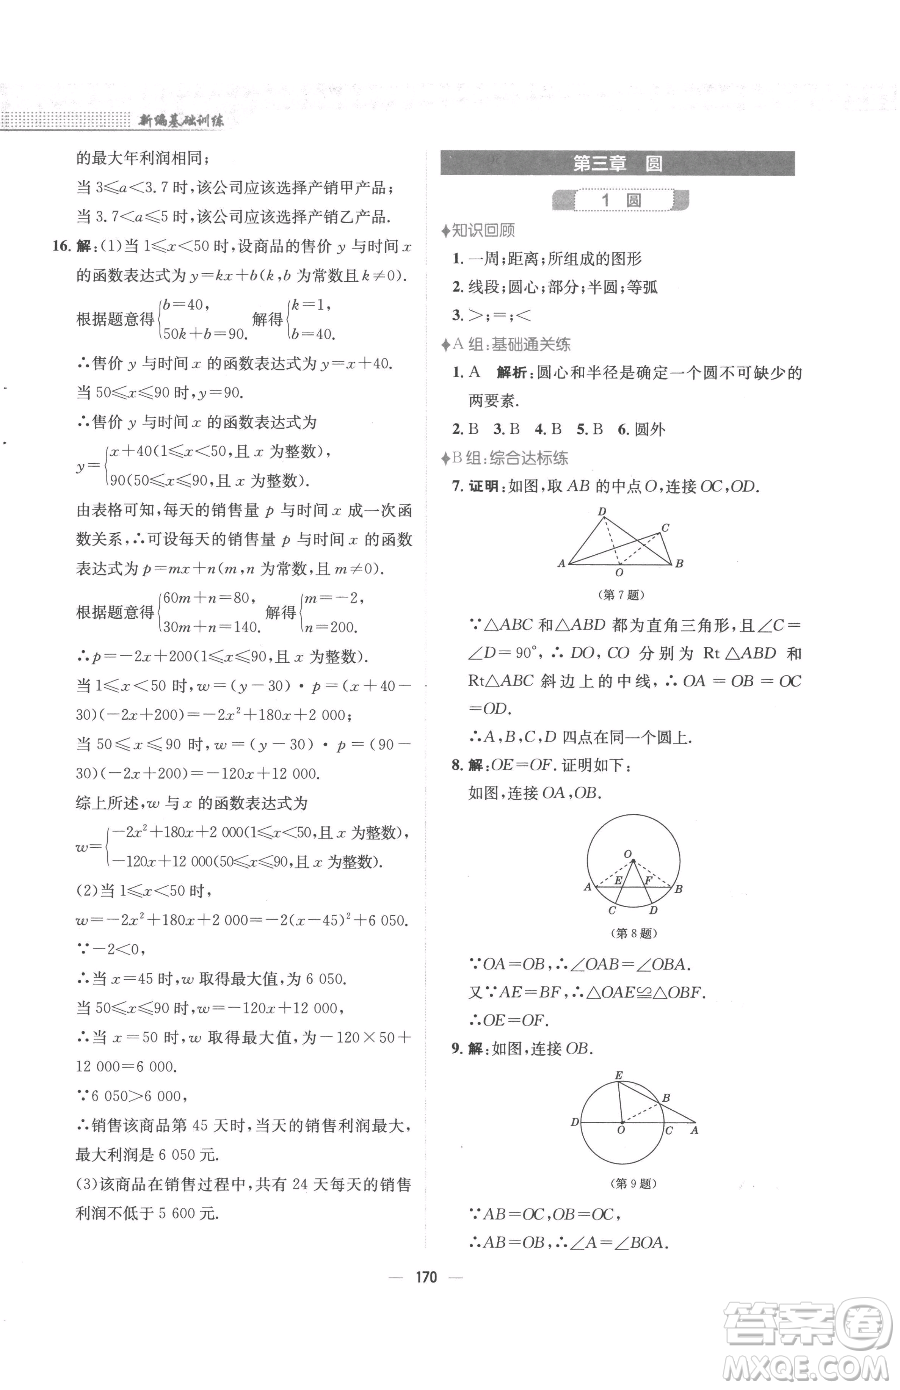 新编基础训练
的最大年利润相同;
当 3≤a<3.7 时,该公司应该选择产销甲产品;
当 3.7<a≤5 时,该公司应该选择产销乙产品.
16. 解:(1)当 1≤x<50 时,设商品的售价 y 与时间 x
的函数表达式为 y=kx+b(k,b 为常数且 k≠0).
根据题意得{b=40, 50k+b=90. 解得{k=1, b=40.
∴售价 y 与时间 x 的函数表达式为 y=x+40.
当 50≤x≤90 时,y=90.
∴售价 y 与时间 x 的函数表达式为
y={x+40(1≤x<50,且 x 为整数),
90(50≤x≤90,且 x 为整数).
由表格可知,每天的销售量 p 与时间 x 成一次函
数关系,∴可设每天的销售量 p 与时间 x 的函数
表达式为 p=mx+n(m,n 为常数,且 m≠0).
根据题意得{60m+n=80, 30m+n=140. 解得{m=-2, n=200.
∴p=-2x+200(1≤x≤90,且 x 为整数).
当 1≤x<50 时,w=(y-30)·p=(x+40-
30)(-2x+200)=-2x²+180x+2 000;
当 50≤x≤90 时,w=(y-30)·p=(90-
30)(-2x+200)=-120x+12 000.
综上所述,w 与 x 的函数表达式为
w={-2x²+180x+2 000(1≤x<50,且 x 为整数),
-120x+12 000(50≤x≤90,且 x 为整数).
(2)当 1≤x<50 时,
w=-2x²+180x+2 000=-2(x-45)²+6 050.
∵-2<0,
∴当 x=45 时,w 取得最大值,为 6 050.
当 50≤x≤90 时,w=-120x+12 000.
∴当 x=50 时,w 取得最大值,为-120×50+
12 000=6 000.
∵6 050>6 000,
∴销售该商品第 45 天时,当天的销售利润最大,
最大利润是 6 050 元.
(3)该商品在销售过程中,共有 24 天每天的销售
利润不低于 5 600 元.
第三章 圆
1 圆
知识回顾
1. 一周;距离;所组成的图形
2. 线段;圆心;部分;半圆;等弧
3. >;=;<
A 组:基础通关练
1. A 解析:圆心和半径是确定一个圆不可缺少的
两要素.
2. B 3. B 4. B 5. B 6. 圆外
B 组:综合达标练
7. 证明:如图,取 AB 的中点 O,连接 OC,OD.
D
C
A
O
B
(第 7 题)
∵△ABC 和△ABD 都为直角三角形,且∠C=
∠D=90°,∴DO,CO 分别为 Rt△ABD 和
Rt△ABC 斜边上的中线,∴OA=OB=OC
=OD.
∴A,B,C,D 四点在同一个圆上.
8. 解:OE=OF.证明如下:
如图,连接 OA,OB.
O
A
E
F
B
C
D
(第 8 题)
∵OA=OB,∴∠OAB=∠OBA.
又∵AE=BF,∴△OAE≌△OBF.
∴OE=OF.
9. 解:如图,连接 OB.
E
B
D
O
C
A
(第 9 题)
∵AB=OC,OB=OC,
∴AB=OB,∴∠A=∠BOA.
170
答案圈
MXQE.COM